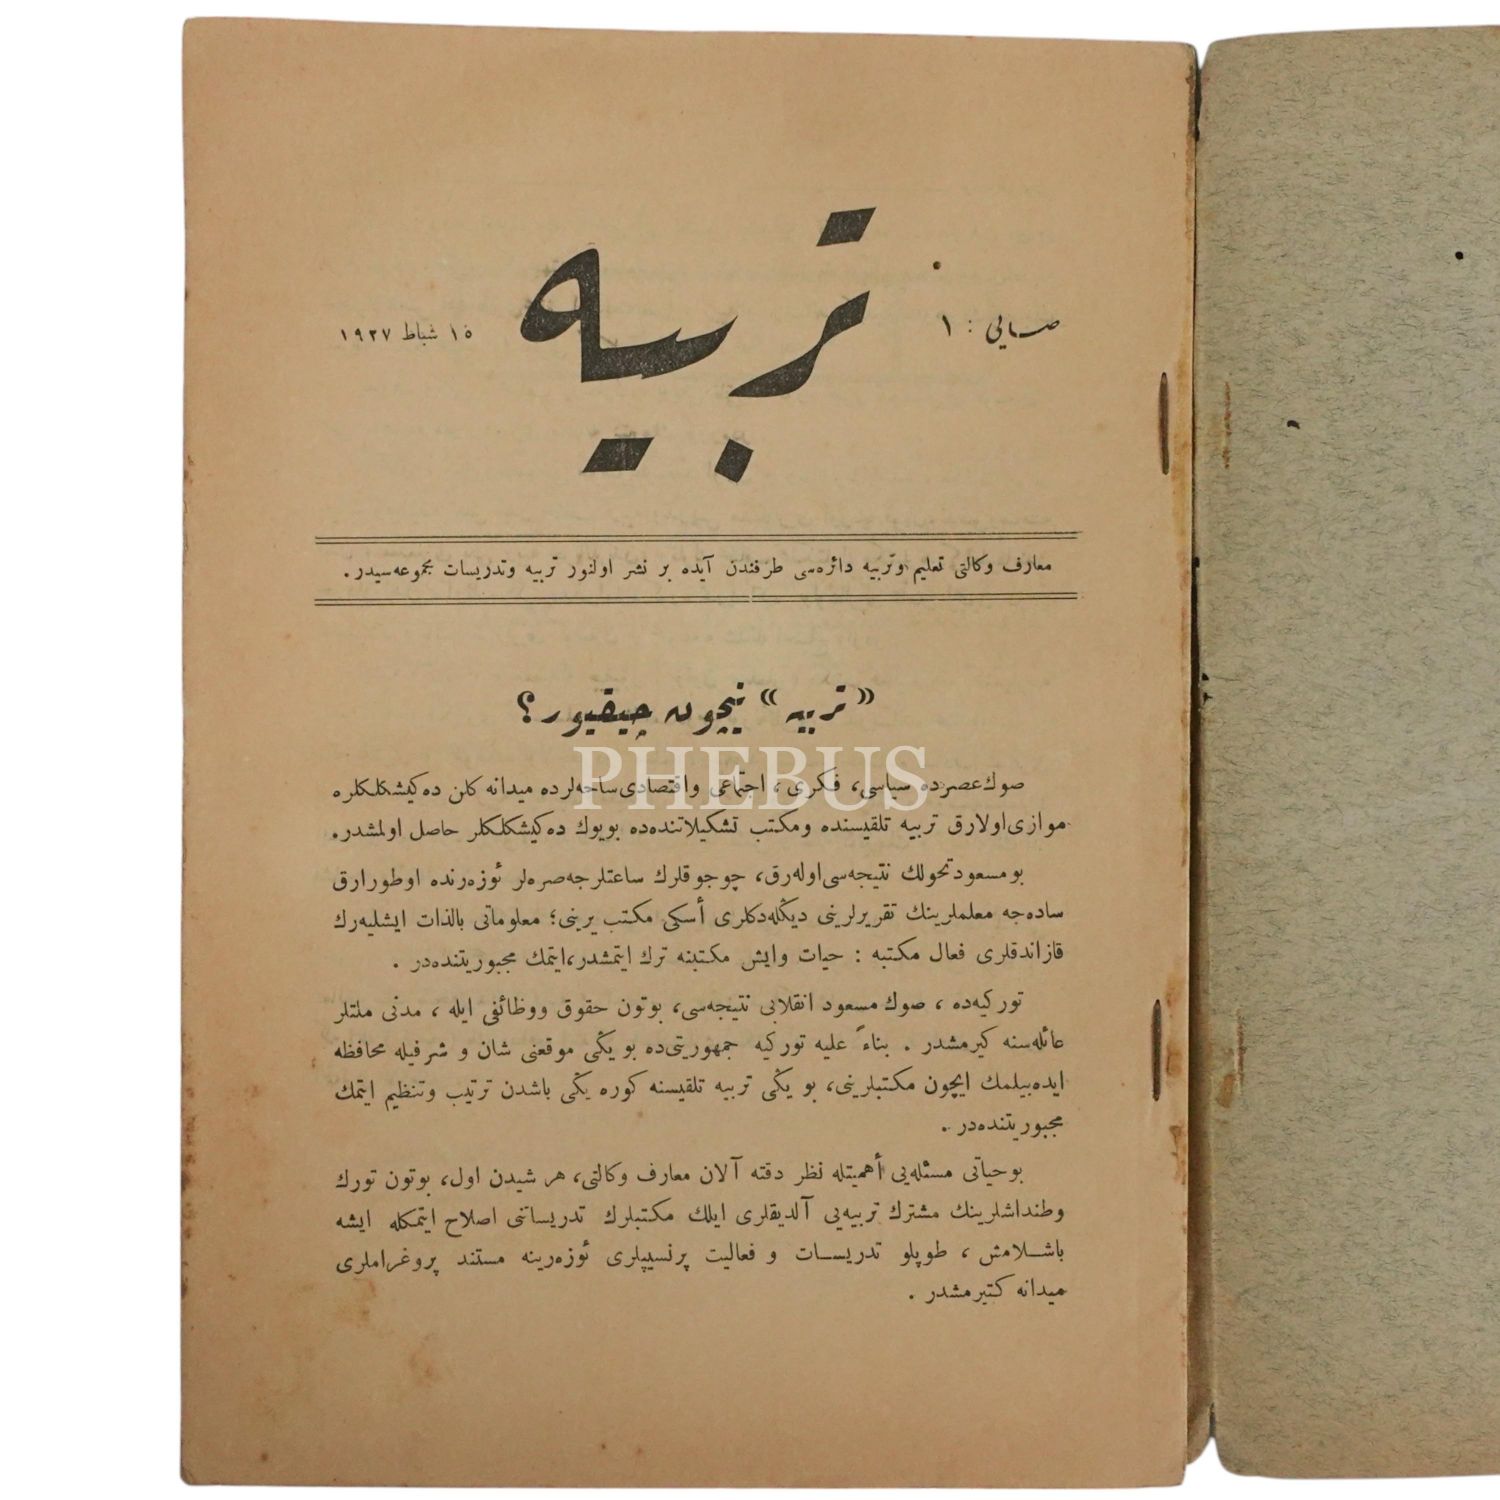 تربیه
صایی : ١
١٥ شباط ١٩٢٧
معارف وکالتی تعلیم وتربیه دائره‌سی طرفندن آیده بر نشر اولنور تربیه وتدریسات مجموعه‌سیدر .
« تربیه » نیچون چیقیور ؟
PHEBUS
صوك عصرده سیاسی، فکری ، اجتماعی واقتصادی ساحه‌لرده میدانه کلن ده‌کیشکلکلره
موازی اولارق تربیه تلقیسنده ومکتب تشکیلاتنده‌ده بویوك ده‌کیشکلکلر حاصل اولمشدر .
بو مسعود تحولك نتیجه‌سی اوله‌رق، چوجوقلرك ساعتلرجه صره‌لر ئوزه‌رنده اوطورارق
ساده‌جه معلملرینك تقریرلرینی دیڭله‌دکلری أسکی مکتب یرینی؛ معلوماتی بالذات ایشلیه‌رك
قازاندقلری فعال مکتبه : حیات وایش مکتبنه ترك ایتمشدر، ایتمك مجبوریتنده‌در .
تورکیه‌ده ، صوك مسعود انقلابی نتیجه‌سی، بوتون حقوق ووظائفی ایله ، مدنی ملتلر
عائله‌سنه کیرمشدر . بناءً علیه تورکیه جمهوریتی‌ده بو یڭی موقعنی شان و شرفیله محافظه
ایده‌بیلمك ایچون مکتبلرینی، بو یڭی تربیه تلقیسنه کوره یڭی باشدن ترتیب وتنظیم ایتمك
مجبوریتنده‌در .
بو حیاتی مسئله‌یی أهمیتله نظر دقته آلان معارف وکالتی، هر شیدن اول، بوتون تورك
وطنداشلرینك مشترك تربیه‌یی آلدیقلری ایلك مکتبلرك تدریساتنی اصلاح ایتمکله ایشه
باشلامش ، طوپلو تدریسات و فعالیت پرنسیپلری ئوزه‌رینه مستند پروغراملری
میدانه کتیرمشدر .